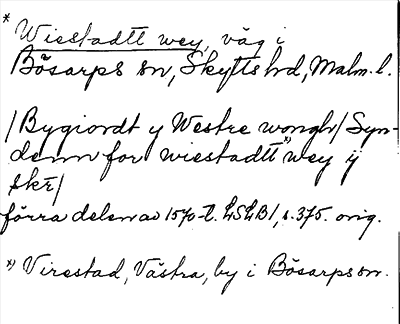 * Wiestadtt wey, väg i
Bösarps sn, Skytts hd, Malm. l.
/Bygiordt y Westre wongh/ Syn-
denn for wiestadtt *) wey ij
skr/
förra delen av 1570-t. LSLB1, s. 375. orig.
*) Virestad, Västra, by i Bösarps sn.